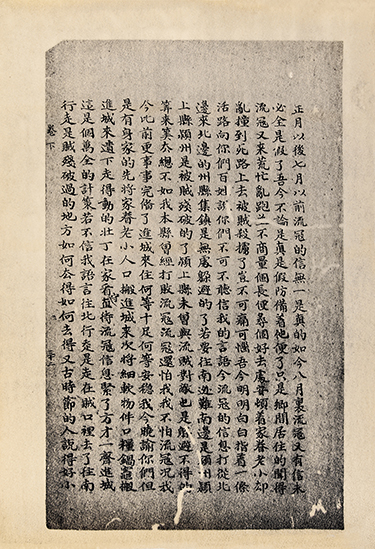 正月以後七月以前流寇的信無一是真的如今八月裏流寇又有信未
必全是假了吾今不論是真是假防備着他便了只是鄉間居住的聞得
流寇又來荒忙亂跑並不商量個長便尋個好去處帶領着家眷老小却
亂撞到死路上去被賊殺擄了豈不可痛可憐吾今明明白白指着一條
活路向你們百姓說你們不可不聽信我的言語今流寇的信息打從北
邊來北邊的州縣集鎮是無處躲避的了若要往南避難南邊是潁州潁
上縣潁州是被賊殘破的了潁上縣未曾與流賊對敵也是躲避不得的
算來算去總不如我本縣曾經打敗流寇流寇還怕我我不怕流寇況我
今比前更事事完備了進城來住何等十足何等安穩我今曉諭你們但
是有身家的先將家眷老小人口搬進城來次將細軟物件口糧鍋竈搬
進城來遺下走得動的壯丁在家看守直待流寇信息緊了方才一齊進城
這是個萬全的計策若不信我語言往北行走是走在賊口裡去了往南
行走是賊殘破過的地方如何去得如何去得又古時節的人說得好小
卷下